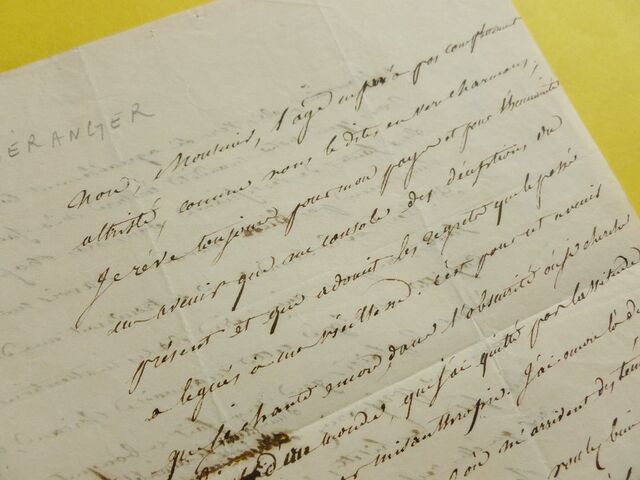 ERANGER
Non, Monsieur, l'âge ne m'a pas complètement
attristé, comme vous le dites en vers charmans;
je rêve toujours pour mon pays et pour l'humanité
un avenir qui me console des déceptions du
présent et qui adoucit les regrets que le passé
a légués à ma vieillesse. C'est pour cet avenir
que je chante encore dans l'obscurité où je cherche
monde, que j'ai quitté par lassitude
misanthropie. J'ai encore là
où m'arrivent des
voulez bien